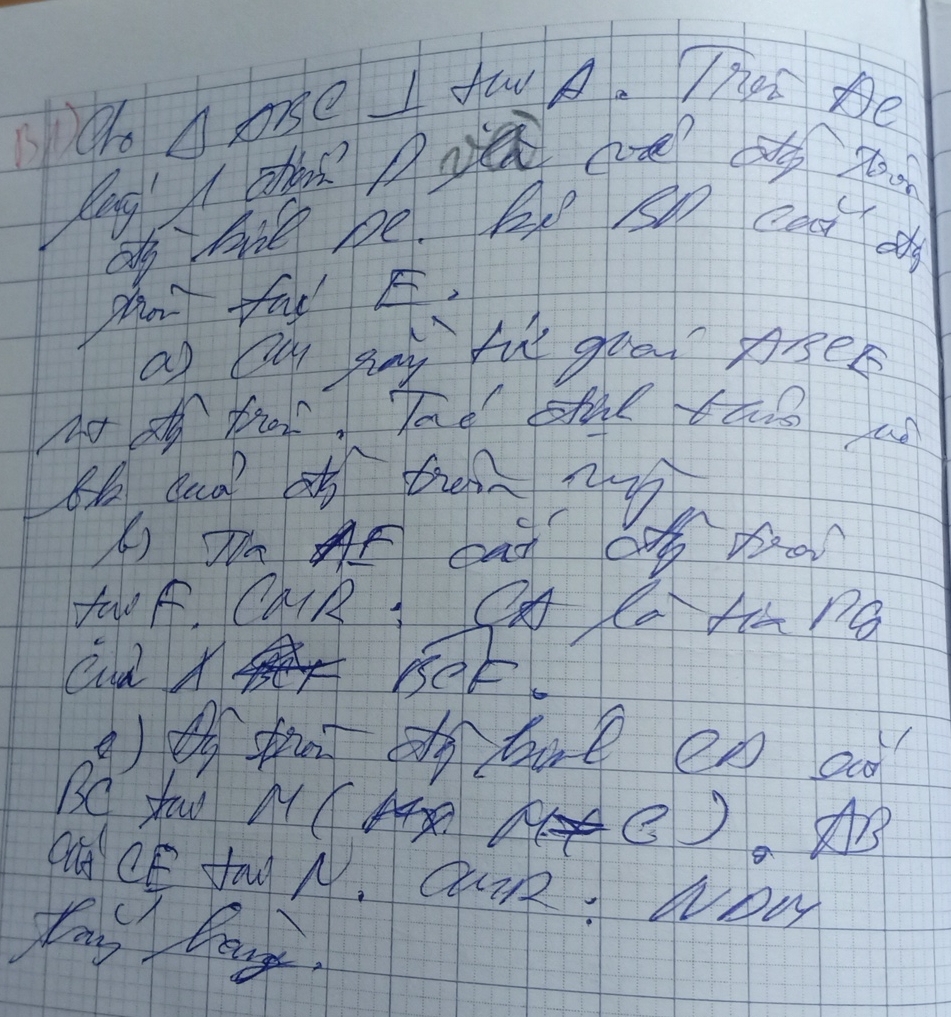 B1) Cho Δ ABC ⊥ tại A. Trên AC
lấy 1 điểm D và vẽ đg tròn
đg kính DC. kẻ BD cắt đg
tròn tại E.
a) CM rằng tứ giác ABCE
nt đg tròn. Xác định tâm và
bk của đg tròn này
b) Tia AE cắt đg tròn
tại F. CMR : CA là tia PG
của BCF.
c) Đg tròn đg kính CD cắt
BC tại M ( M ≠ C ). AB
cắt CE tại N. CMR : NDM
thẳng hàng.